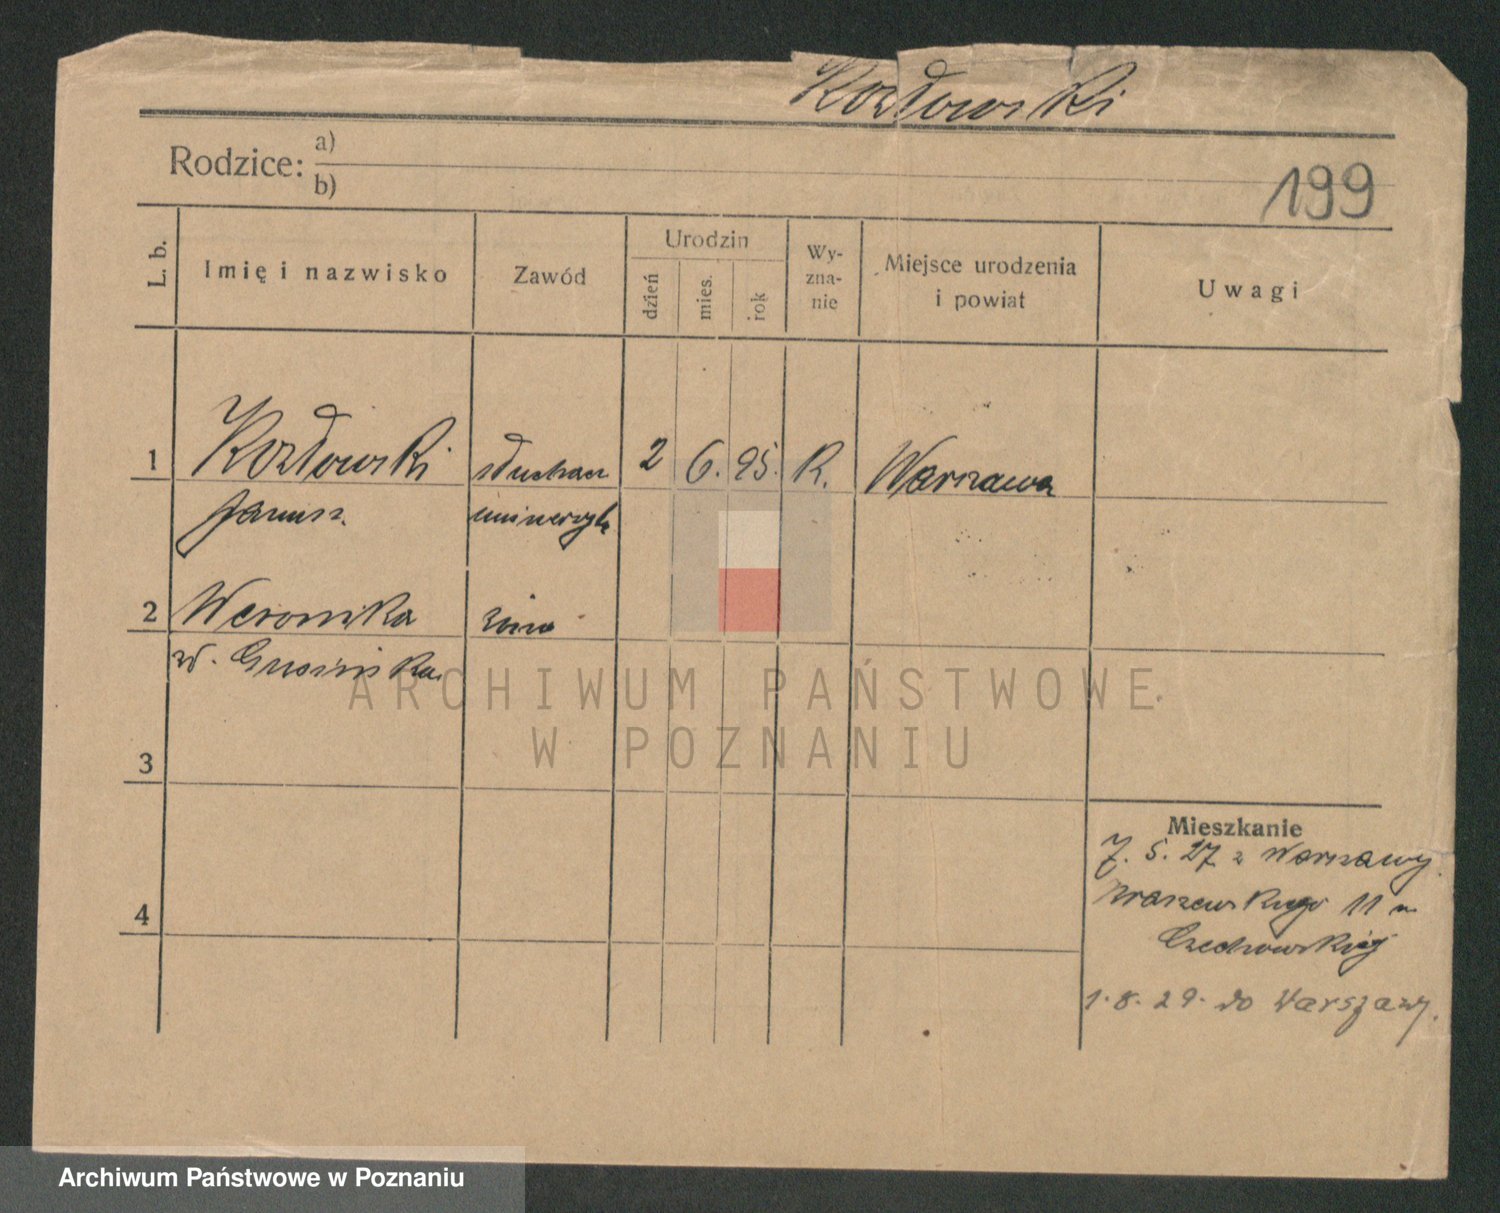 Kozłowski
Rodzice: a)
b)
199
L. b.
Imię i nazwisko
Zawód
Urodzin
dzień
mies.
rok
Wy-
zna-
nie
Miejsce urodzenia
i powiat
Uwagi
1 Kozłowski słuchacz 2 6. 95. R. Warszawa
Janusz.
2 Weronika żona
z d.
3
4
Mieszkanie
7. 5. 27 z Warszawy
Kraszewskiego 11 u
Czechowskiej
1. 8. 29. do Warszawy.
ARCHIWUM PAŃSTWOWE
W POZNANIU
Archiwum Państwowe w Poznaniu